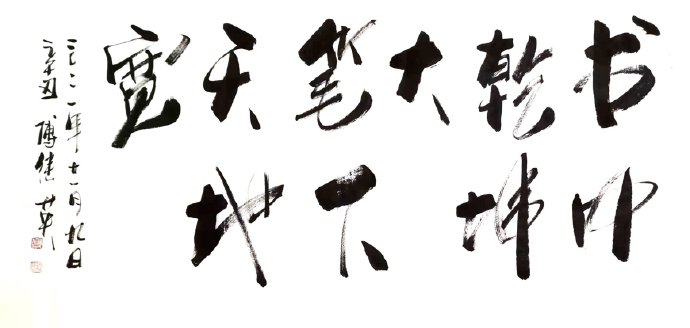 书中
乾坤
大
笔下
天地
宽
二〇二一年十一月九日
辛丑 傅继英